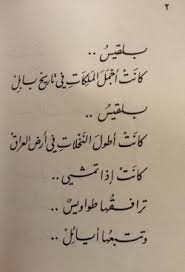 ٢
بلقيس ..
كانَتْ أجْمَلَ المَلِكَاتِ في تاريخِ بابِلْ
بلقيس ..
كانَتْ أطولَ النَخْلاتِ في أرضِ العراقْ
كانَتْ إذا تمشي ..
ترافقُها طواويسٌ ..
وتتبعُها أيائلْ ..